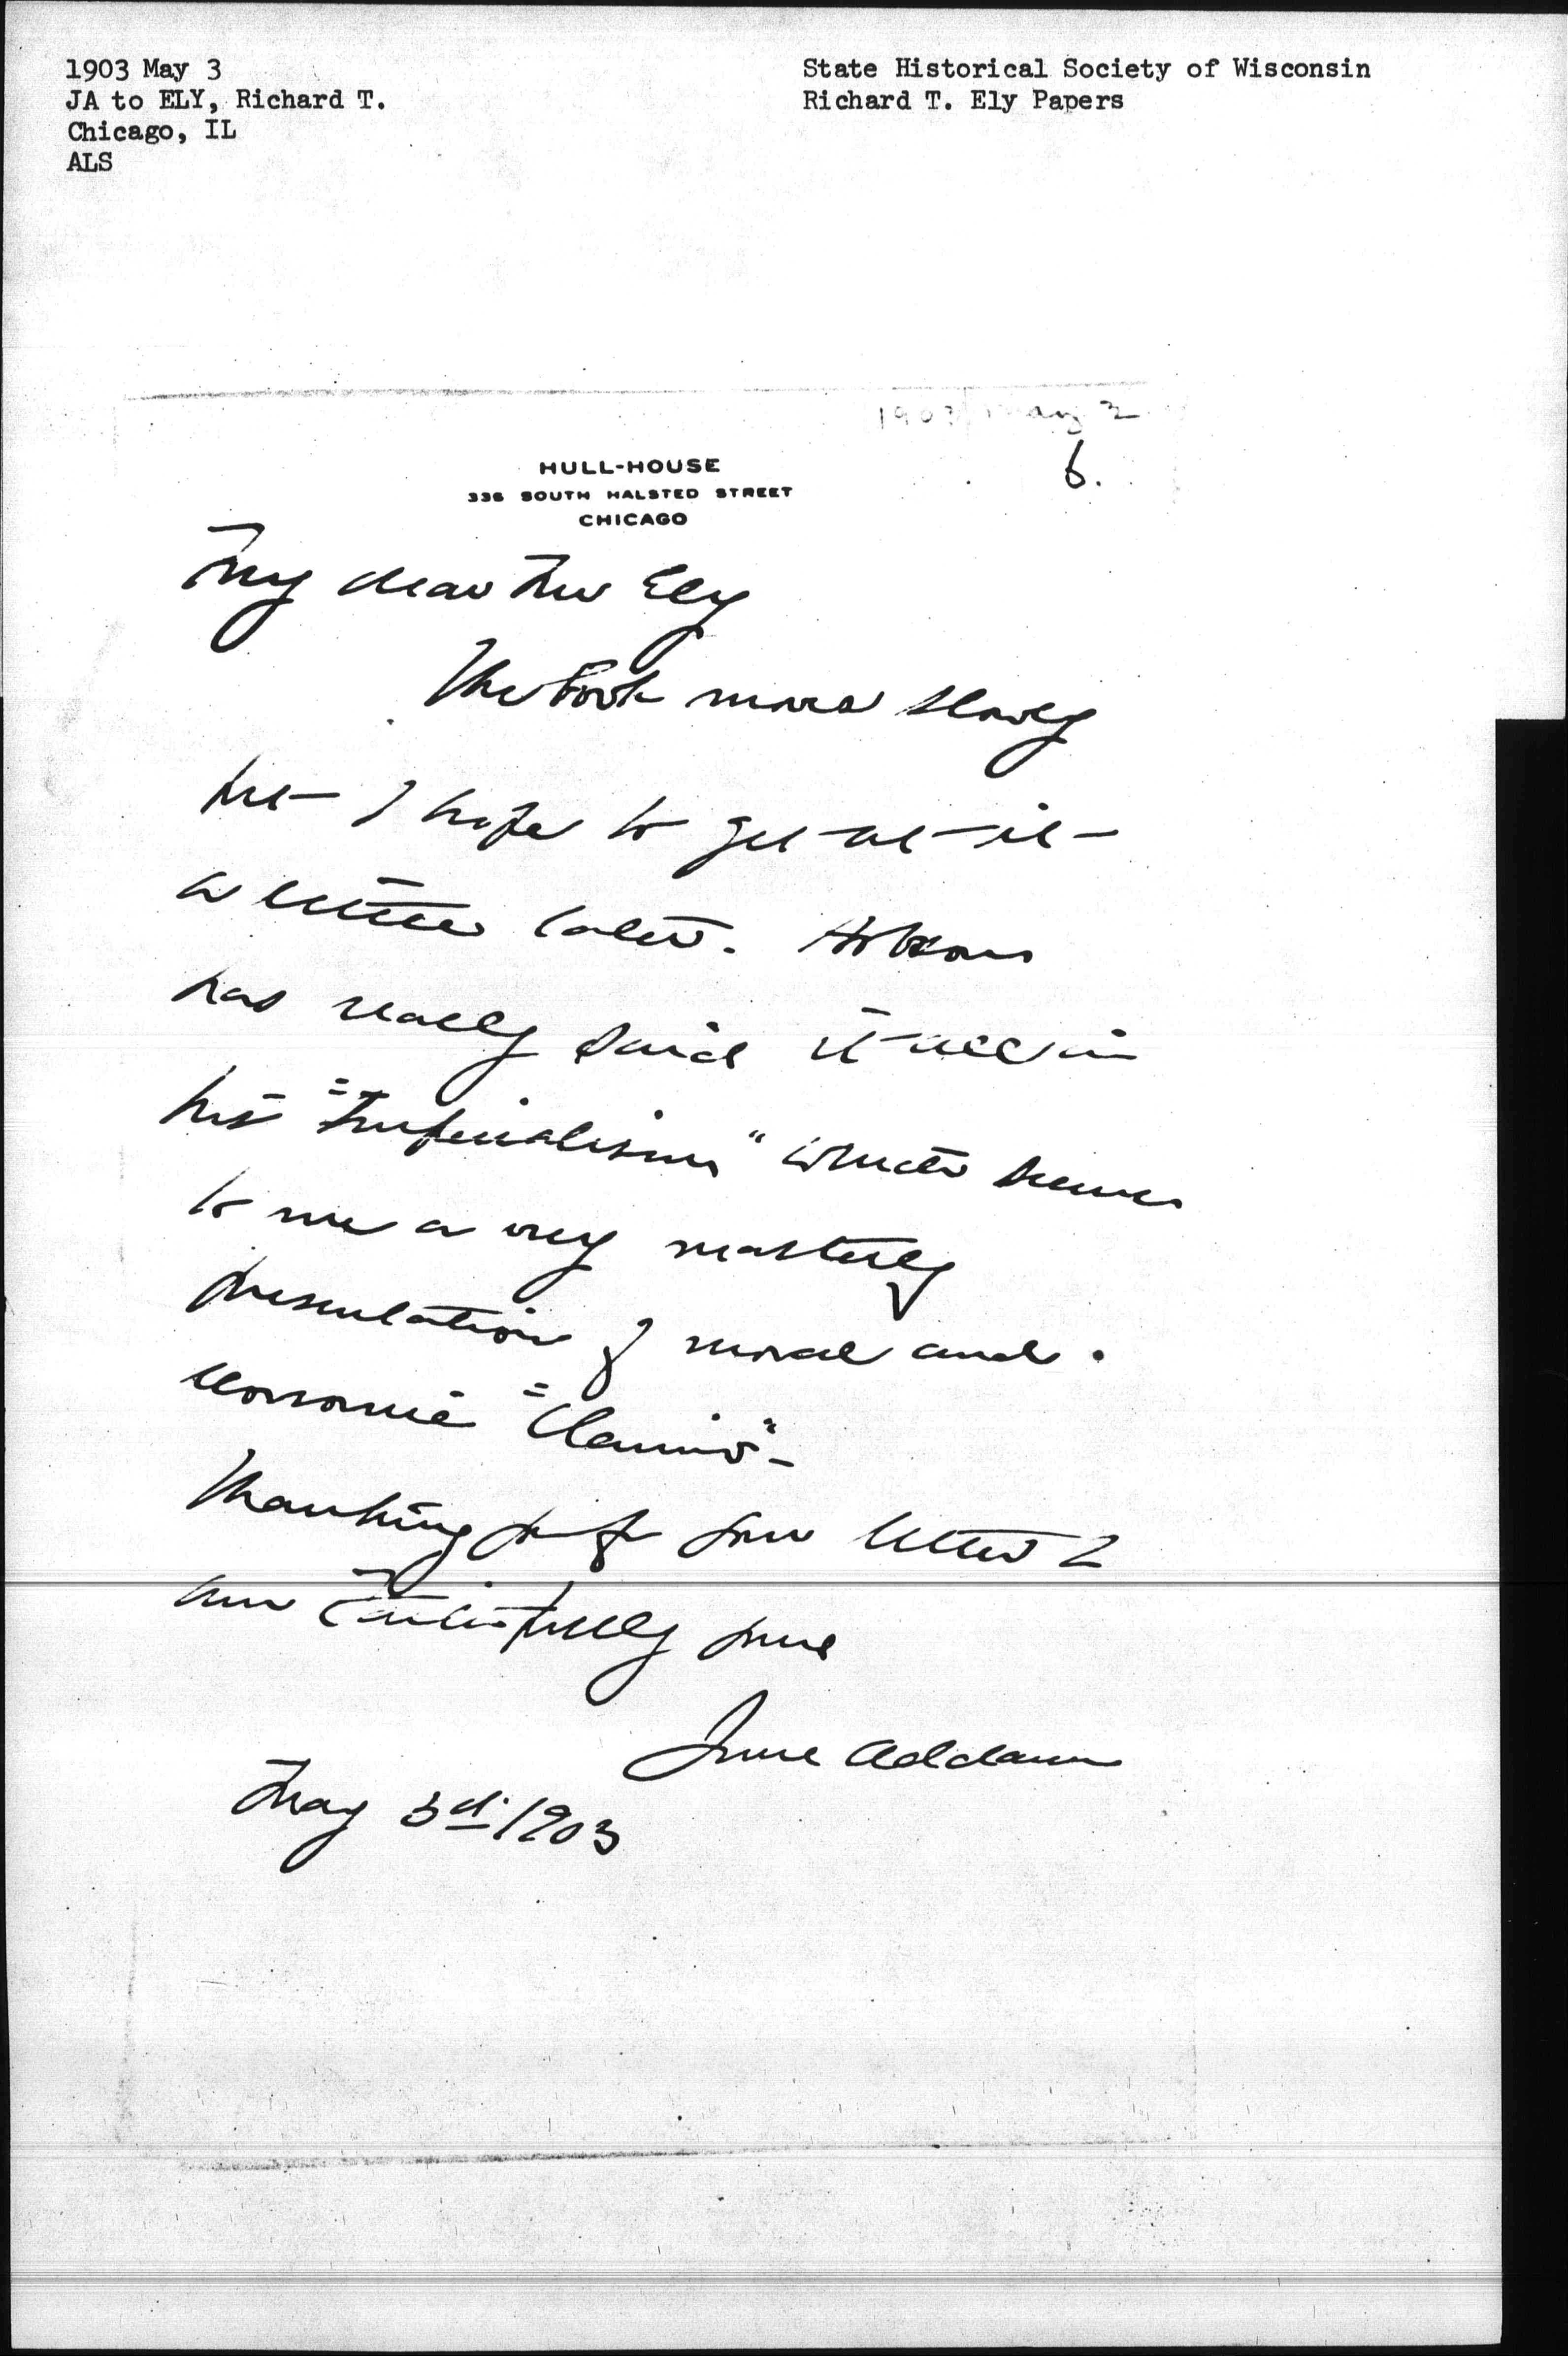 1903 May 3
JA to ELY, Richard T.
Chicago, IL
ALS
State Historical Society of Wisconsin
Richard T. Ely Papers
1903 May 3
6.
HULL-HOUSE
335 SOUTH HALSTED STREET
CHICAGO
My dear Mr Ely
The book moves slowly
but I hope to get at it
a little later. Hobson
has really said it all in
his "Imperialism" which seems
to me a very masterly
presentation of moral and
economic "claims"-
Thanking you for your letter I
am faithfully yours
Jane Addams
May 3d. 1903